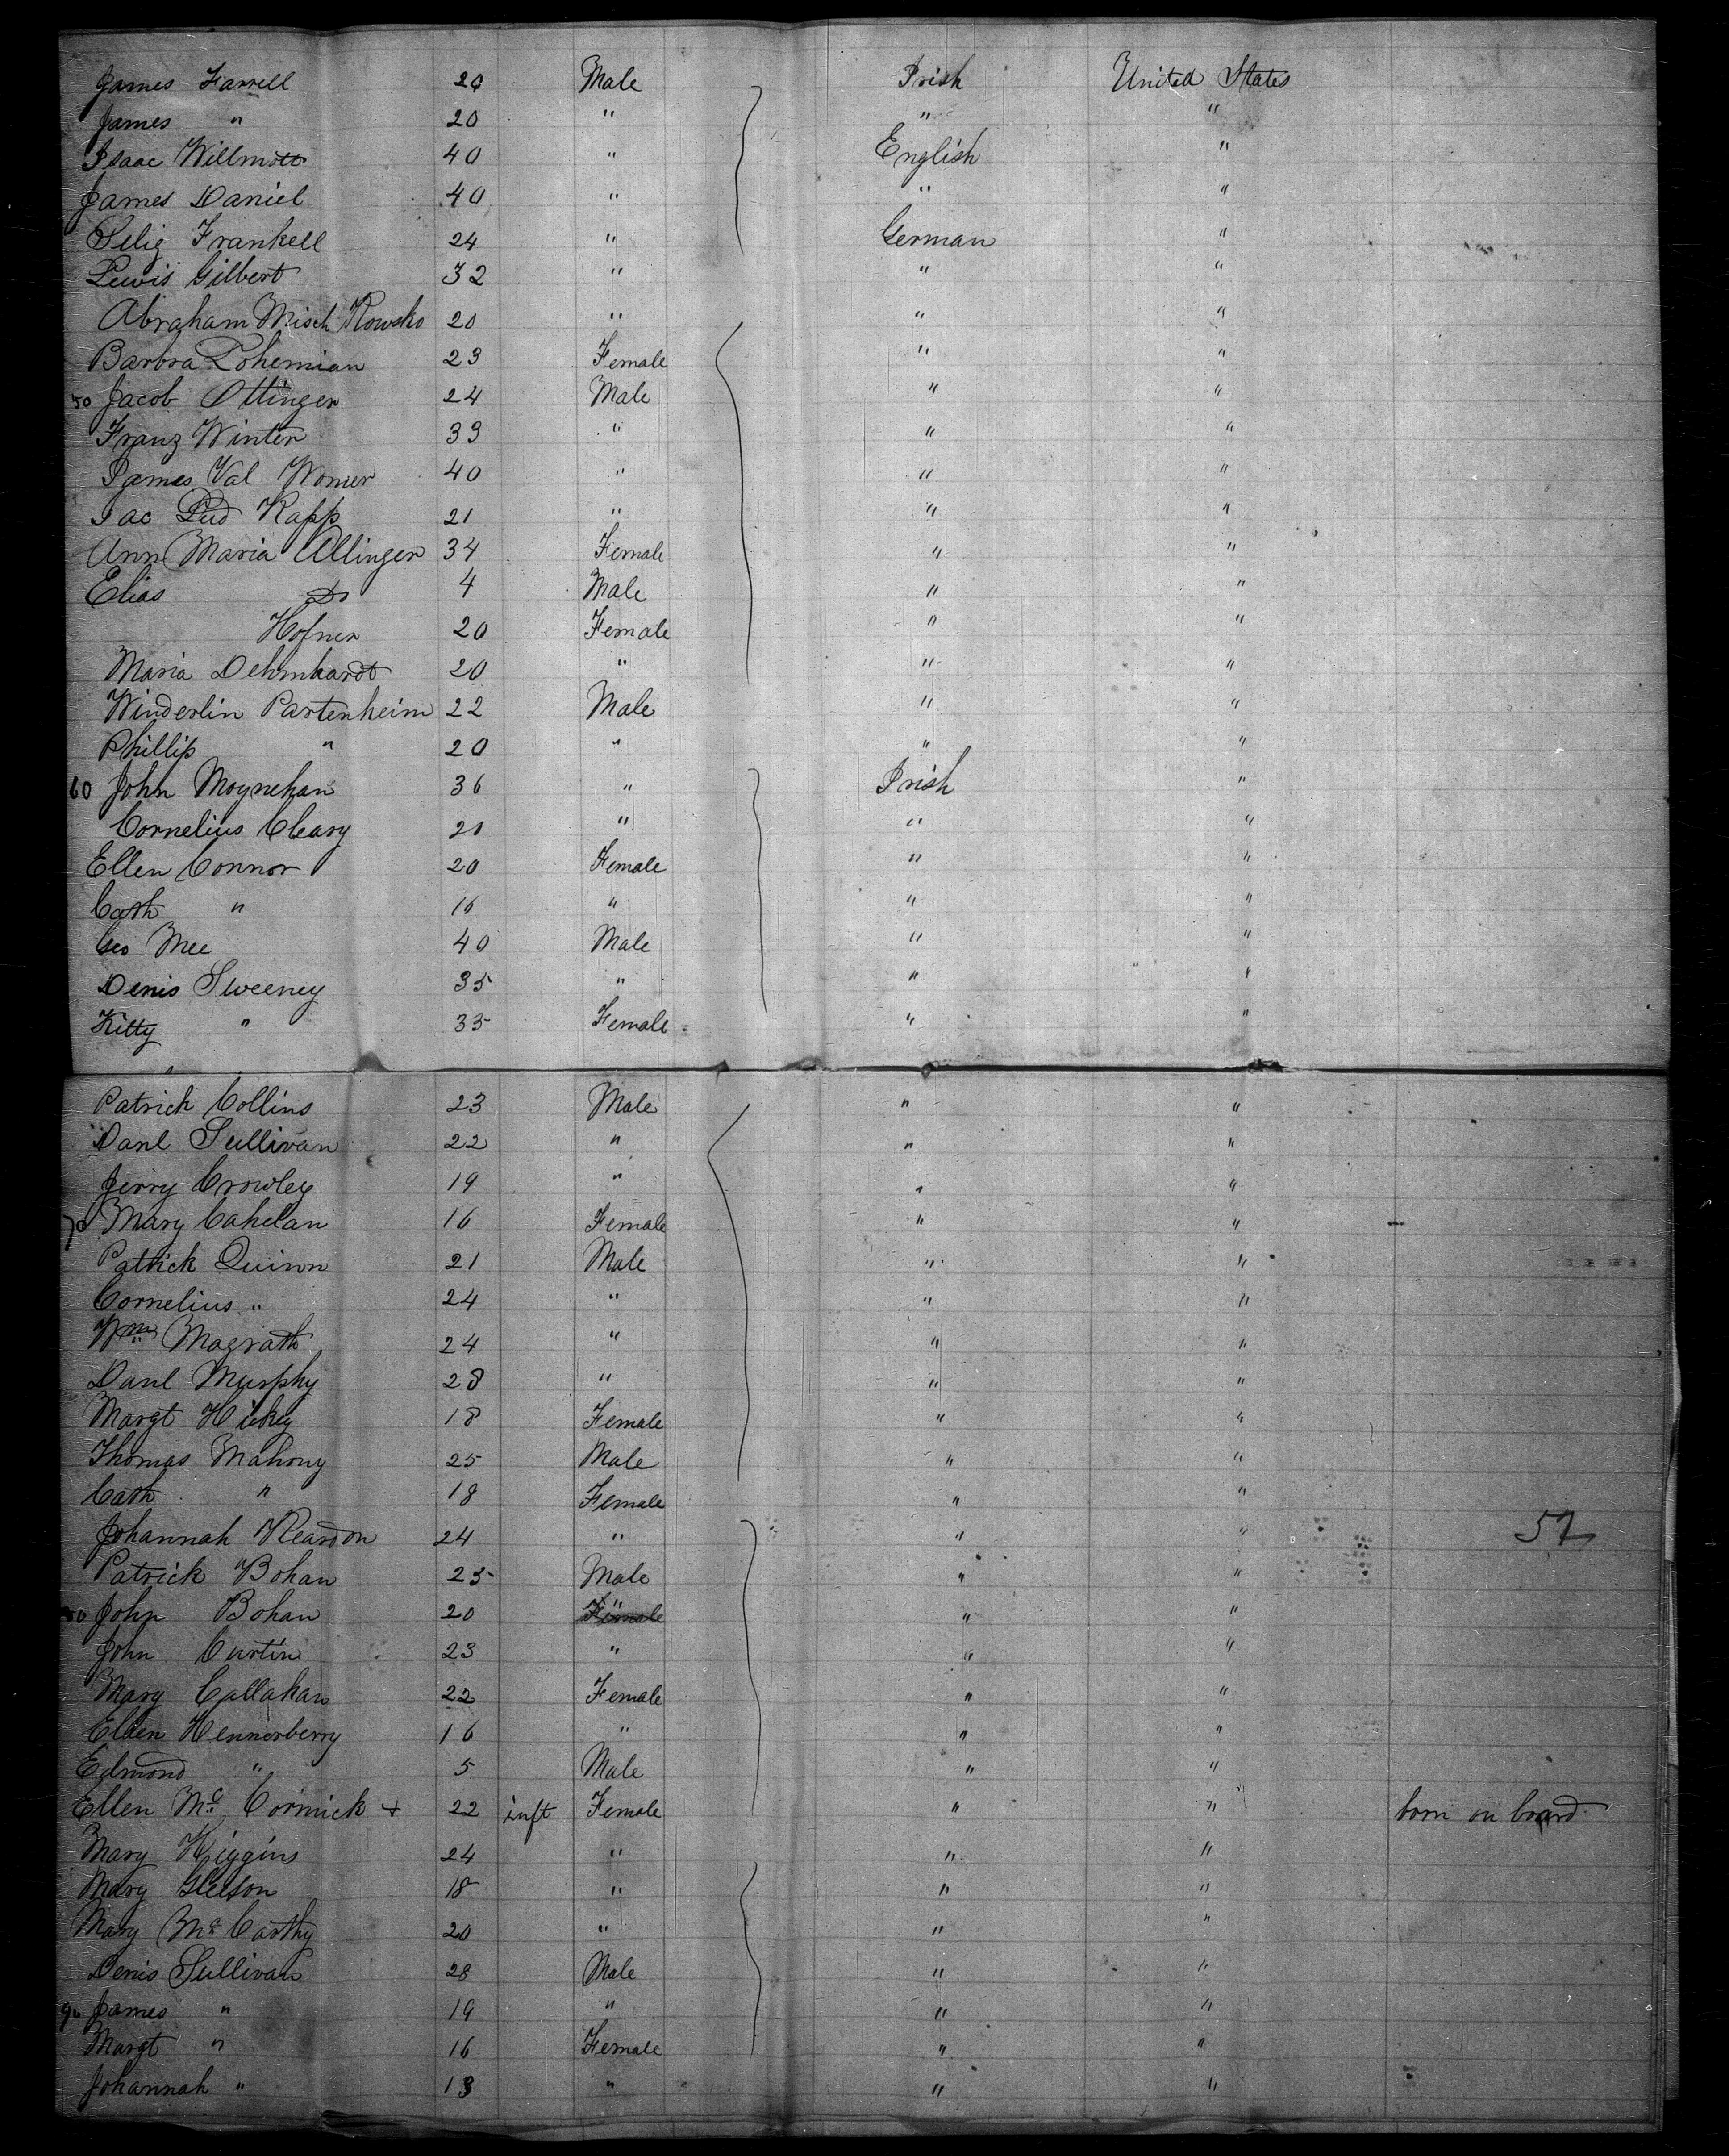 James Farrell 20 Male Irish United States
James " 20 " " "
Isaac Willmott 40 " English "
James Daniel 40 " " "
Selig Frankell 24 " German "
Lewis Gilbert 32 " " "
Abraham Misch Kowsko 20 " " "
Barbra Bohemian 23 Female " "
50 Jacob Ottinger 24 Male " "
Franz Winter 33 " " "
James Val Womer 40 " " "
Jac Lud Rapp 21 " " "
Ann Maria Allinger 34 Female " "
Elias Do 4 Male " "
Hofner 20 Female " "
Maria Dehmhardt 20 " " "
Winderlin Partenheim 22 Male " "
Phillip " 20 " " "
60 John Moynehan 36 " Irish "
Cornelius Cleary 20 " " "
Ellen Connor 20 Female " "
Cath " 16 " " "
Geo Mee 40 Male " "
Denis Sweeney 35 " " "
Kitty " 35 Female " "
Patrick Collins 23 Male " "
Danl Sullivan 22 " " "
Jerry Crowley 19 " " "
70 Mary Cahelan 16 Female " "
Patrick Quinn 21 Male " "
Cornelius " 24 " " "
Wm Magrath 24 " " "
Danl Murphy 28 " " "
Margt Hickey 18 Female " "
Thomas Mahony 25 Male " "
Cath " 18 Female " "
Johannah Reardon 24 " " " 57
Patrick Bohan 25 Male " "
80 John Bohan 20 Female " " "
John Curtin 23 " " "
Mary Callahan 22 Female " "
Ellen Hennerberry 16 " " "
Edmond " 5 Male " "
Ellen Mc Cormick + 22 inft Female " " born on board
Mary Higgins 24 " " "
Mary Gleeson 18 " " "
Mary Mc Carthy 20 " " "
Denis Sullivan 28 Male " "
90 James " 19 " " "
Margt " 16 Female " "
Johannah " 13 " " "